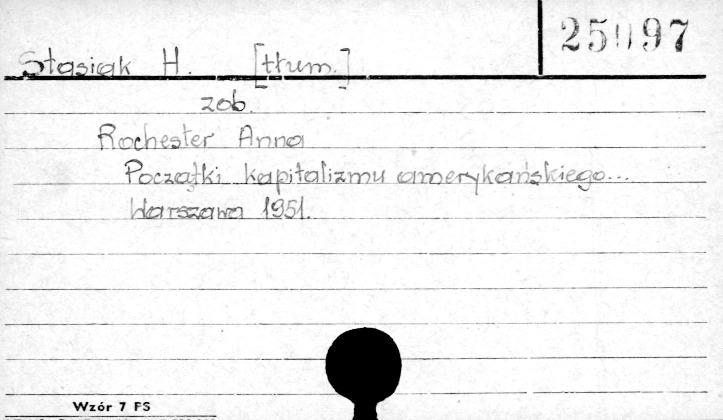 25097
Stasiak H. [tłum.]
zob.
Rochester Anna
Początki kapitalizmu amerykańskiego...
Warszawa 1951.
Wzór 7 FS